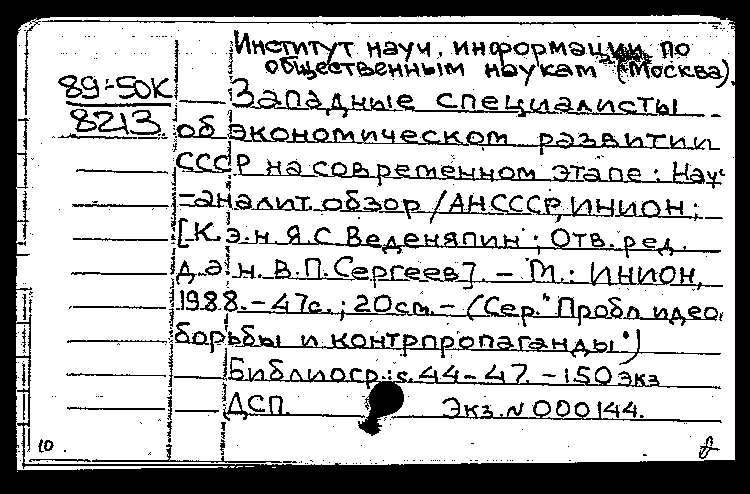 Институт науч. информации по
общественным наукам (Москва).
89-50К
8213
Западные специалисты
об экономическом развитии
СССР на современном этапе: Науч
-аналит. обзор / АН СССР, ИНИОН;
[К.э.н. Я.С. Веденяпин; Отв. ред.
д.э.н. В.П. Сергеев]. - М.: ИНИОН,
1988. - 47с.; 20см. - (Сер. "Пробл идео.
борьбы и контрпропаганды")
Библиогр.: с. 44-47. - 150 экз
ДСП. Экз. N 000144.
10